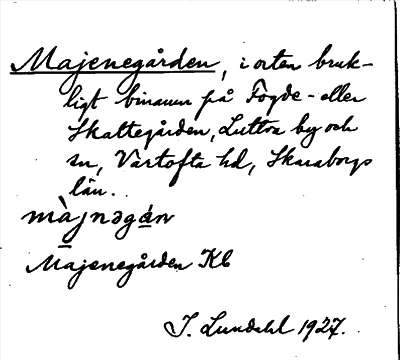 Majenegården, i orten bruk-
ligt binamn på Fogde- eller
Skattegården, Luttra by och
sn, Vartofta hd, Skaraborgs
län.
màjnəgán
Majenegården Kb
J. Lundahl 1927.